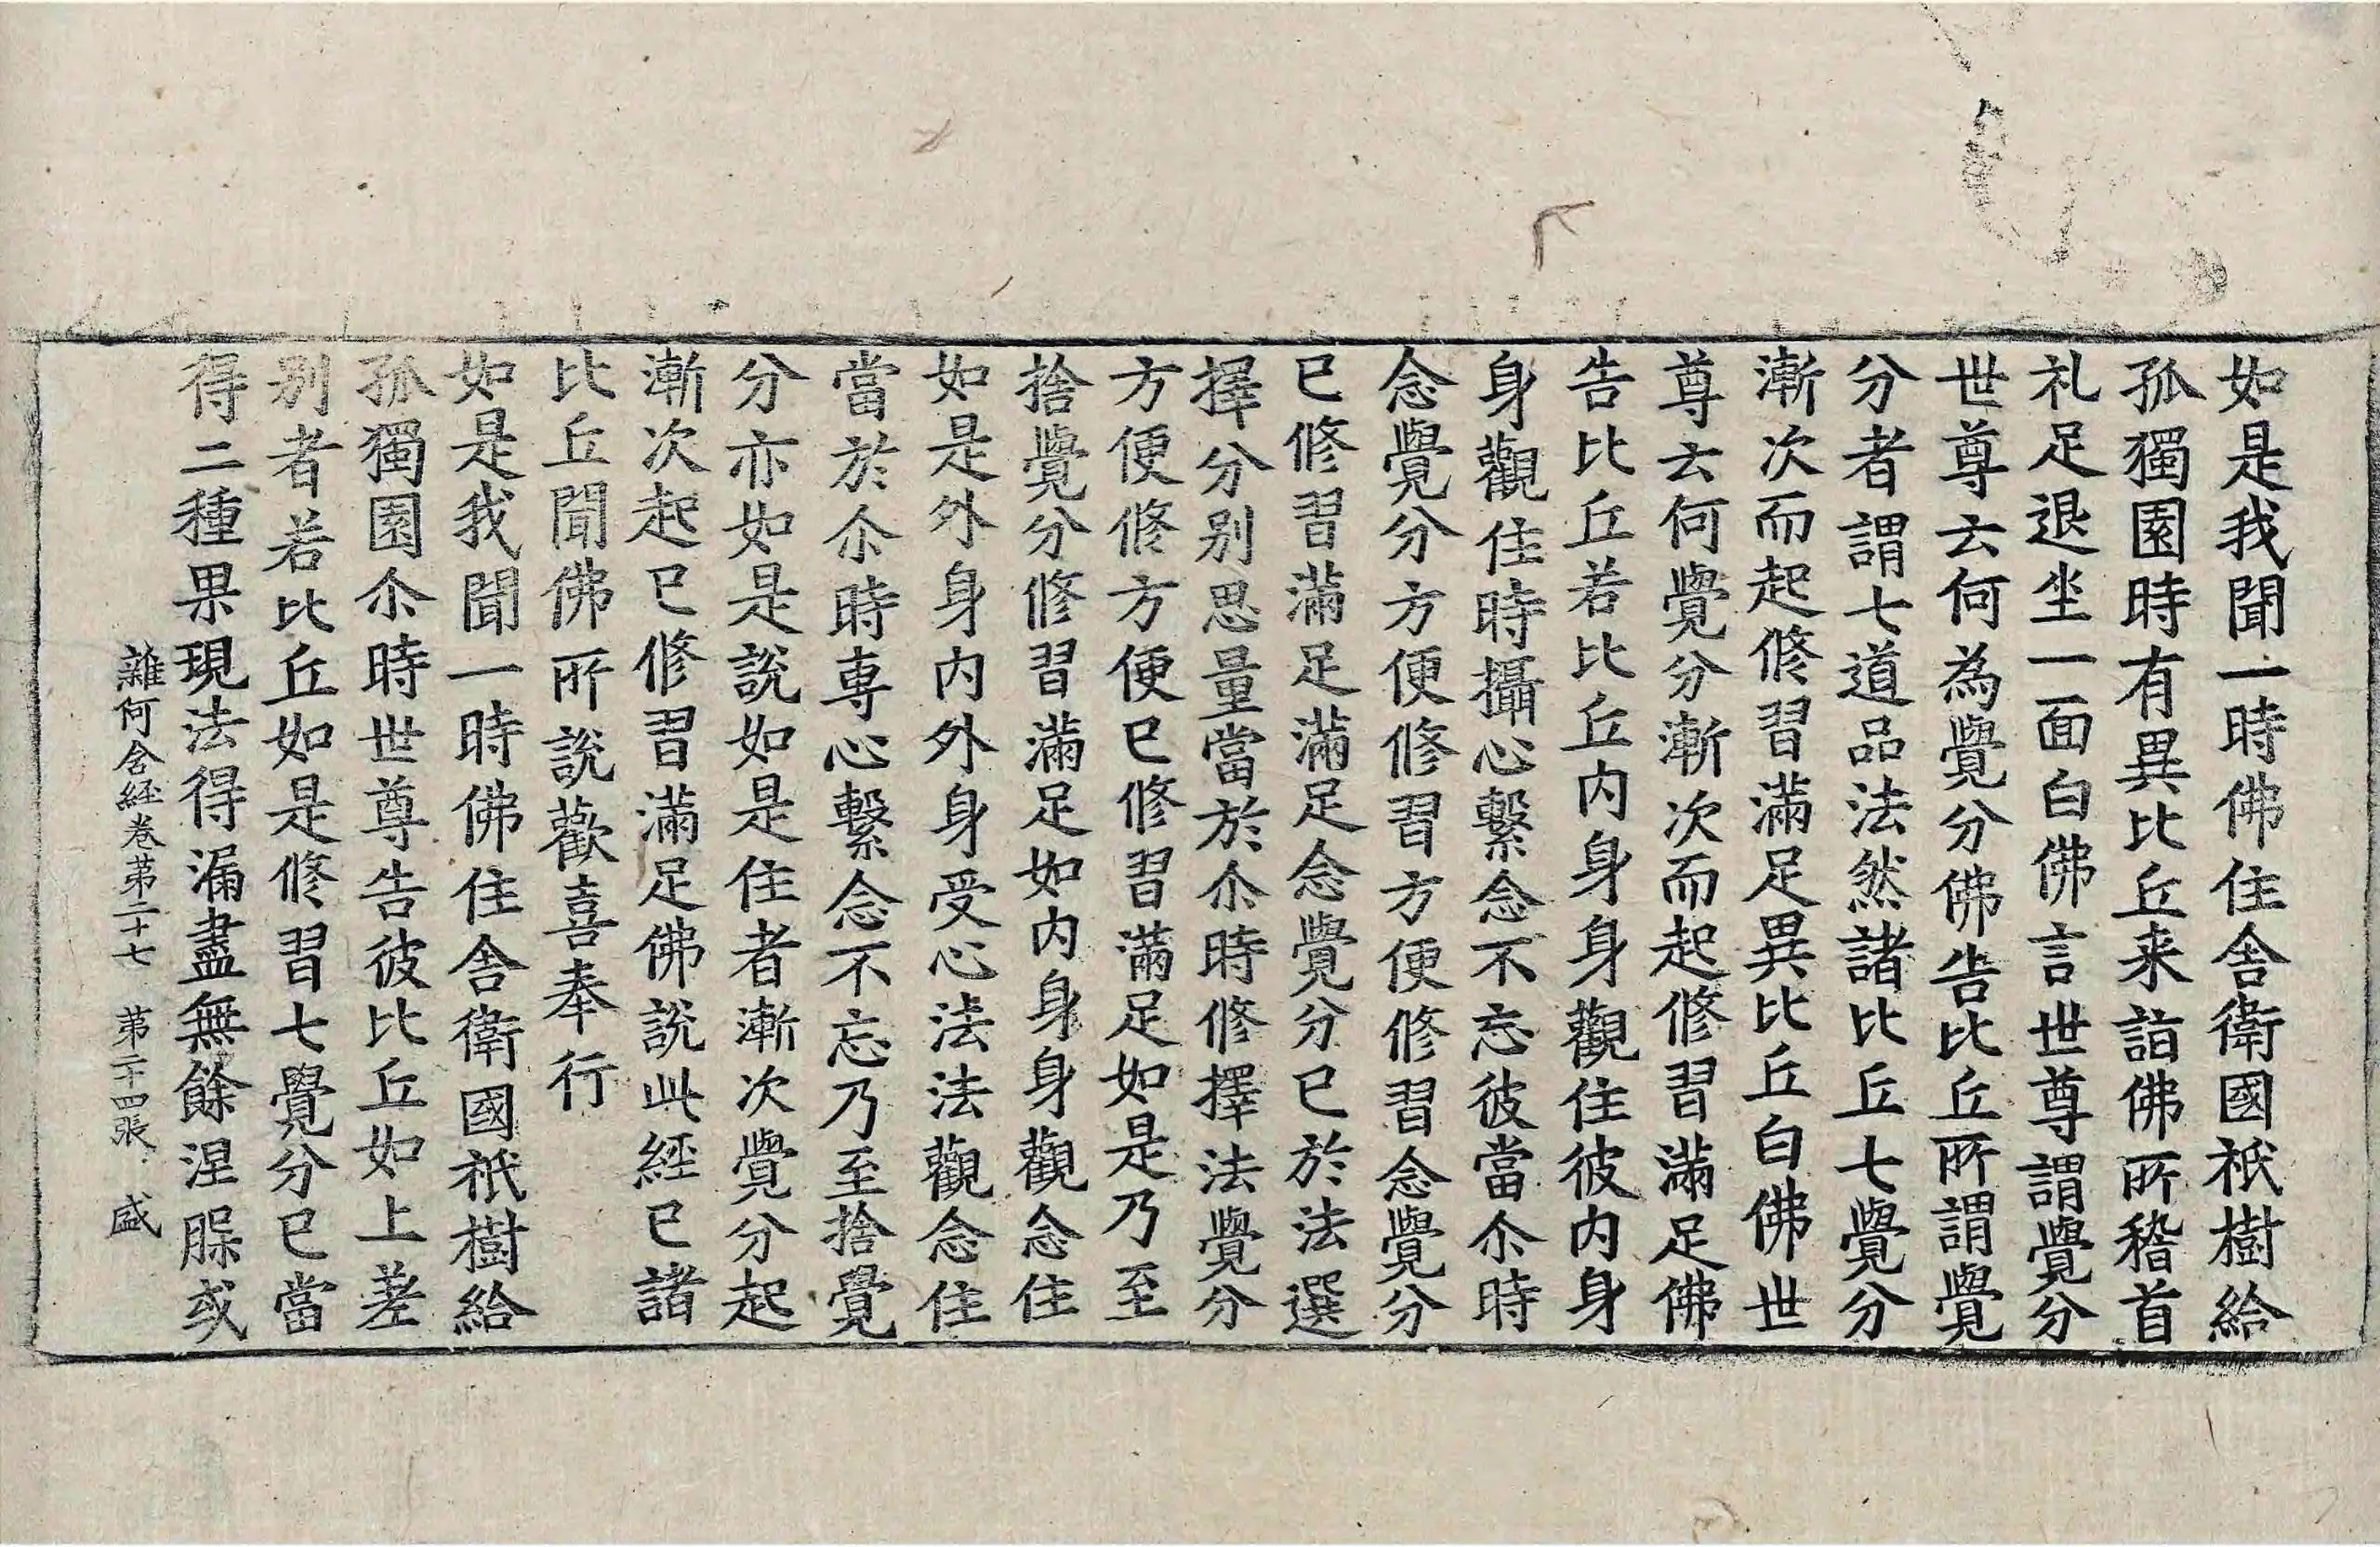 如是我聞一時佛住舎衛國祇樹給
孤獨園時有異比丘来詣佛所稽首
礼足退坐一面白佛言世尊謂覺分
世尊云何為覺分佛告比丘所謂覺
分者謂七道品法然諸比丘七覺分
漸次而起修習滿足異比丘白佛世
尊云何覺分漸次而起修習滿足佛
告比丘若比丘内身身觀住彼内身
身觀住時攝心繫念不忘彼當尒時
念覺分方便修習方便修習念覺分
已修習滿足滿足念覺分已於法選
擇分别思量當於尒時修擇法覺分
方便修方便已修習滿足如是乃至
捨覺分修習滿足如内身身觀念住
如是外身内外身受心法法觀念住
當於尒時專心繫念不忘乃至捨覺
分亦如是說如是住者漸次覺分起
漸次起已修習滿足佛說此經已諸
比丘聞佛所說歡喜奉行
如是我聞一時佛住舎衛國祇樹給
孤獨園尒時世尊告彼比丘如上差
别者若比丘如是修習七覺分已當
得二種果現法得漏盡無餘涅脲或
雜阿含經卷苐二十七 苐二十四張 盛